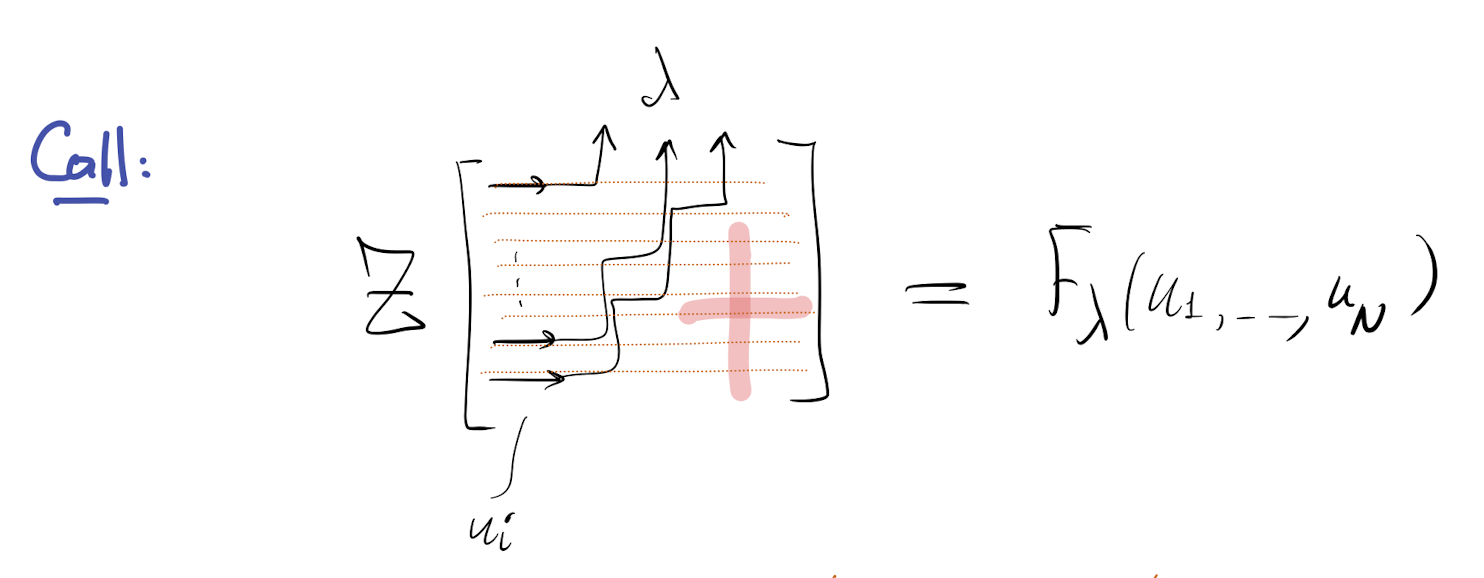 λ
Call:
Z [ ] = F_λ(u_1, ---, u_N)
u_i